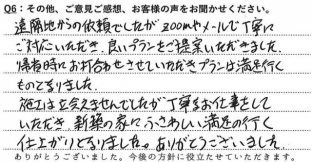 Q6：その他、ご意見ご感想、お客様の声をお聞かせください。
遠隔地からの依頼でしたがzoomやメールで丁寧に
ご対応いただき、良いプランをご提案いただきました。
帰省時にお打合わせさせていただきプランは満足行く
ものとなりました。
施工は立会えませんでしたが丁寧なお仕事をして
いただき 新築の家にふさわしい満足の行く
仕上がりとなりました。ありがとうございました。
ありがとうございました。今後の方針に役立たせていただきます。